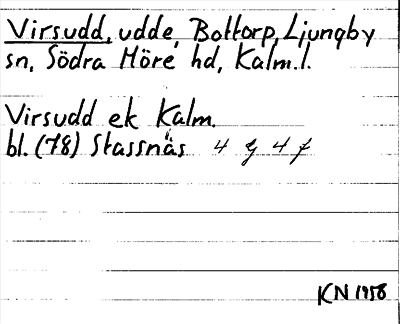 Virsudd, udde, Bottorp, Ljungby
sn, Södra Möre hd, Kalm. l.
Virsudd ek Kalm.
bl. (78) Stassnäs 4 g 4 f
KN 1958